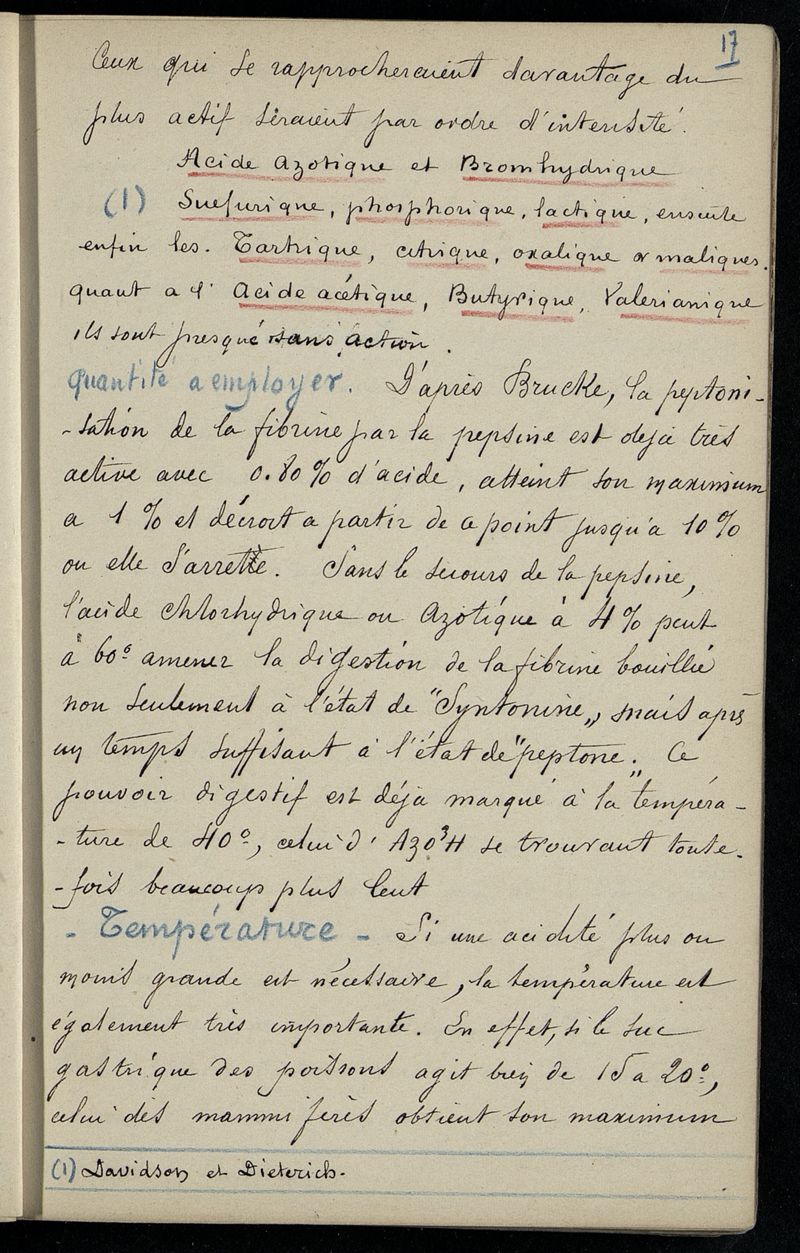 17
Ceux qui se rapprocheraient davantage du
plus actif seraient par ordre d'intensité.
Acide azotique et Bromhydrique
(1) Suefurique, phosphorique, lactique, ensuite
enfin les. Tartrique, citrique, oxalique & maliques.
quant a l' Acide acétique, Butyrique, Valerianique
ils sont presque sans action.
Quantité a employer. D'après Brucke, la peptoni-
-sation de la fibrine par la pepsine est deja très
active avec 0.80% d'acide, atteint son maximum
a 1 % et décroit a partir de ce point jusqu'a 10 %
ou elle s'arrette. Sans le secours de la pepsine,
l'acide chlorhydrique ou Azotique à 4 % peut
à 60° amener la digestion de la fibrine bouillie
non seulement à l'état de "Syntonine„ mais après
un temps suffisant à l'état de "peptone„. Ce
pouvoir digestif est déja marqué à la tempéra-
-ture de 40°, celui d' AzO³H se trouvant toute-
-fois beaucoup plus lent
- Température - Si une acidité plus ou
moins grande est nécessaire, la température est
également très importante. En effet, si le suc
gastrique des poissons agit bien de 15 a 20°,
celui des mammifères obtient son maximum
(1) Davidson et Dieterich.